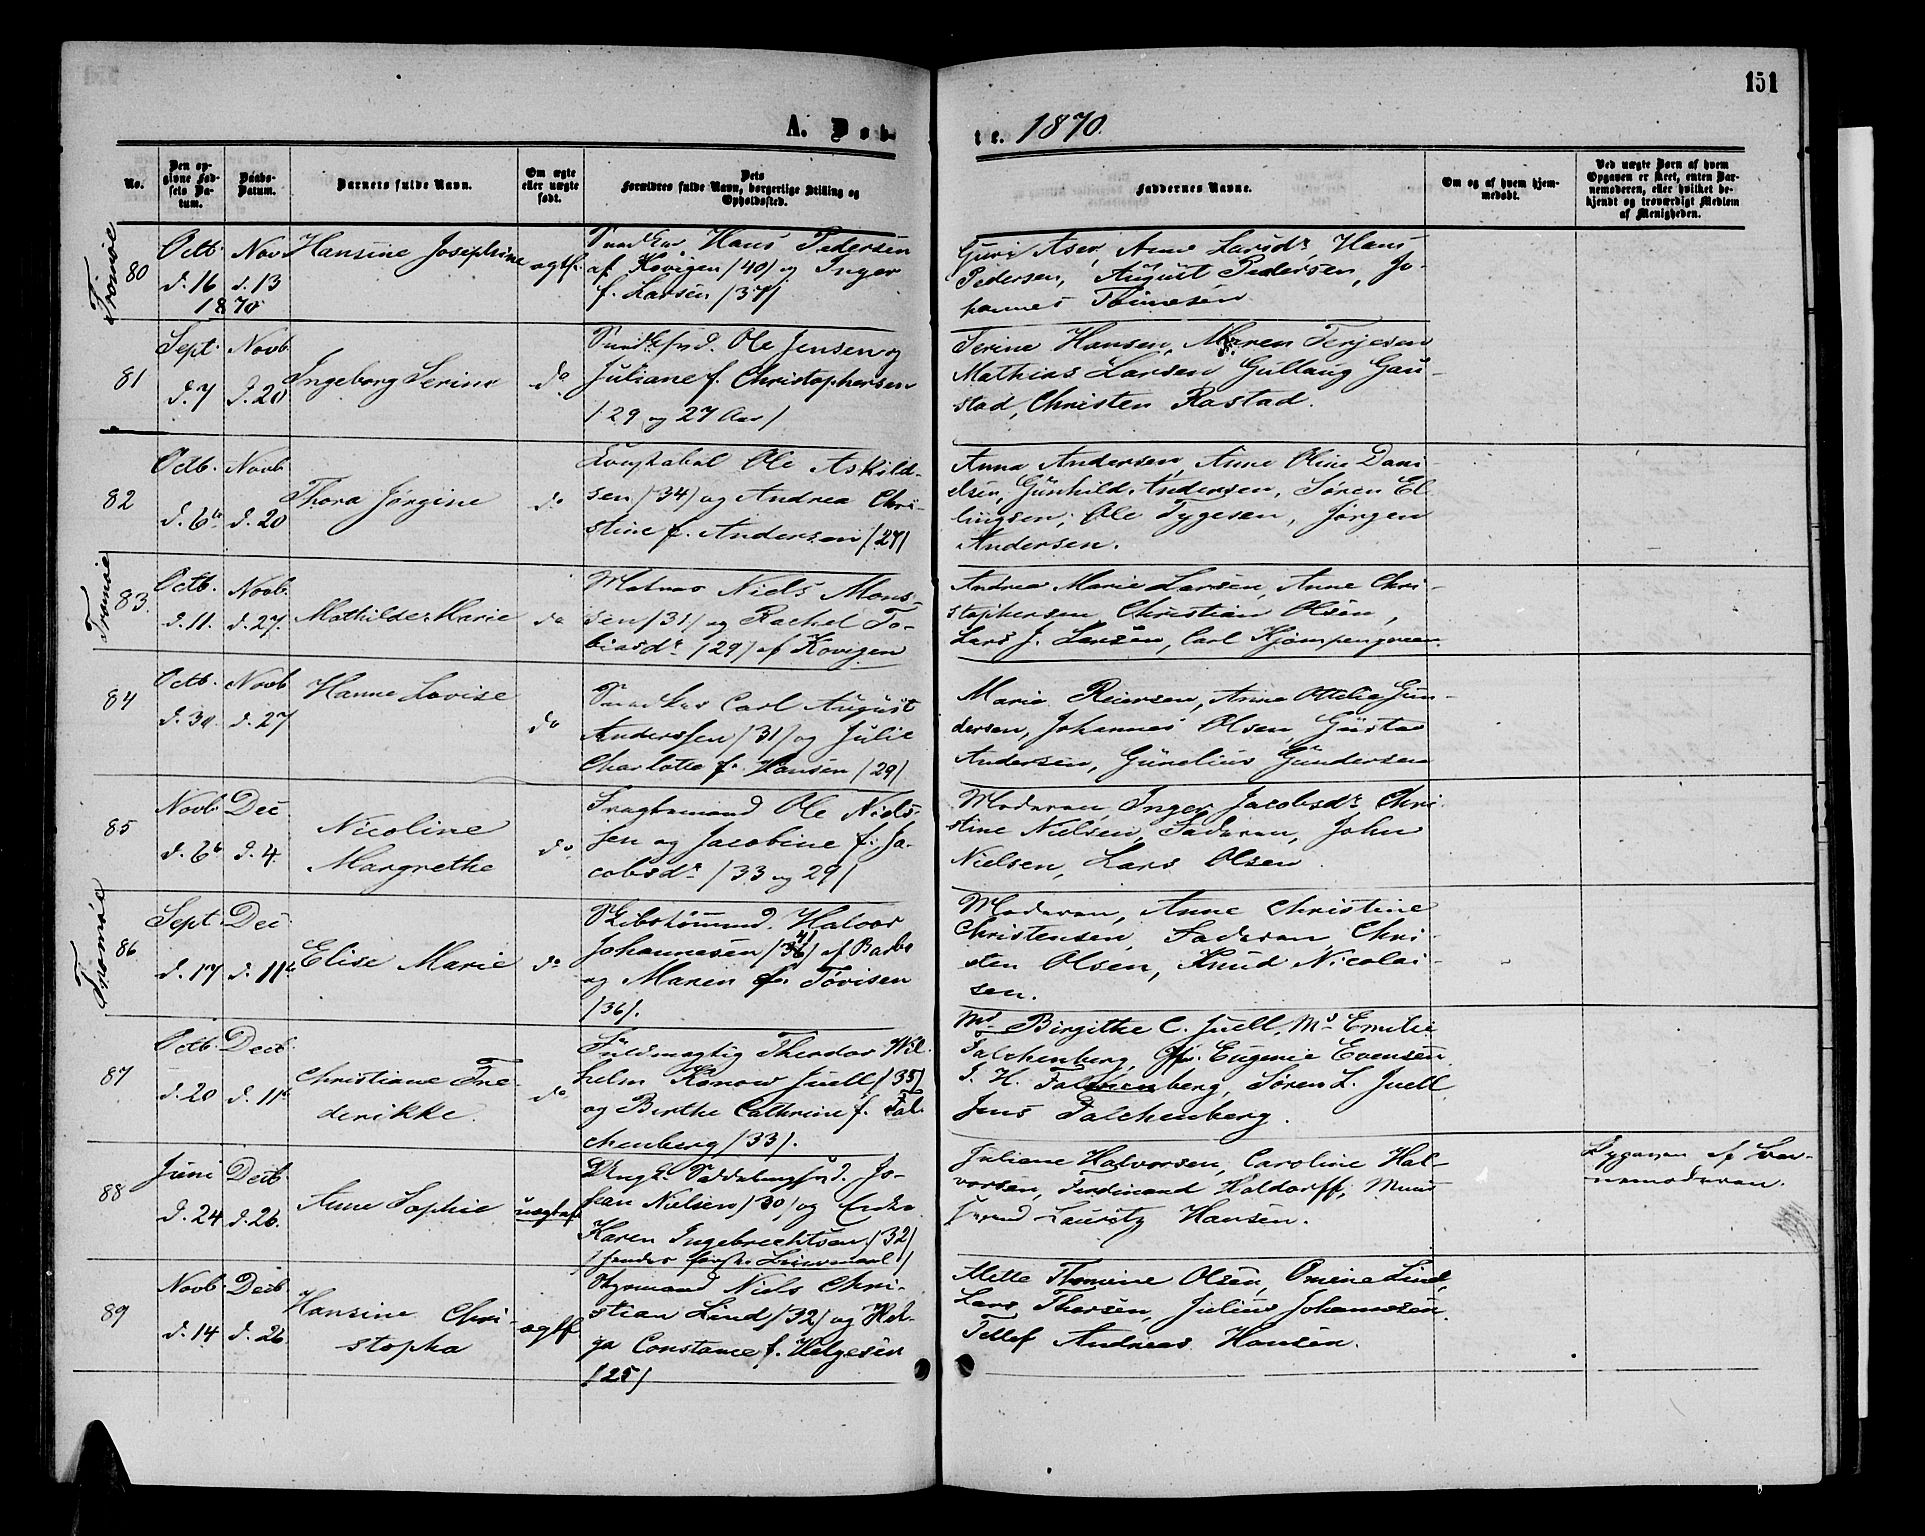 151
A. Døb-
te. 1870.
No.
Den op-
givne Fød-
sels Da-
tum.
Daabs-
Datum.
Barnets fulde Navn.
Om ægte
eller uægte
født.
Dets
Forældres fulde Navn, borgerlige Stilling og
Opholdssted.
Faddernes Navne.
Om og af hvem hjem-
medøbt.
Ved uægte Børn af hvem
Opgaven er skeet, enten Bar-
nemoderen, eller hvilket be-
kjendt og troværdigt Medlem
af Menigheden.
Tromøe
80
Octb. d. 16
1870
Nov d. 13
Hansine Josephine
ægtf.
Hans Pedersen
af Kovigen /40/ og Inger
f. Larsen /37/
Guri Aser, Ane Larsdr Hans
Pedersen, August Pedersen, Jo-
hannes Tønnesen
81
Sept. d. 7
Novb. d. 20
Ingeborg Serine
do
Ole Jensen og
Juliane f. Christophersen
/29 og 27 Aar/
Terine Hansen, Maren Terjesen
Mathias Larsen Gullaug Gau-
stad, Christen Rostad.
82
Octb. d. 6te
Novb d. 20
Thora Jørgine
do
Ole Askild-
sen /34/ og Andrea Chri-
stine f. Andersen /27/
Anna Andersen, Anne Oline Dani-
elsen, Gunhild Andersen, Søren El-
lingsen, Ole Tygesen, Jørgen
Andersen.
Tromøe
83.
Octb. d. 11.
Novb. d. 27.
Mathilde Marie
do
Matros Niels Mons-
sen /31/ og Rachel To-
biasdr /29/ af Kovigen
Andrea Marie Larsen, Anne Chri-
stophersen Christian Olsen,
Lars J. Larsen, Carl
84
Octb. d. 30.
Novb d. 27
Hanne Lovise
do
Carl August
Anderssen /31/ og Julie
Charlotte f. Hansen /29/
Marie Reiersen, Anne Ottilie Gun-
dersen, Johannes Olsen, Gustav
Andersen, Gunelius Gundersen
85
Novb. d. 6te
Dec d. 4
Nicoline
Margrethe
do.
Fragtemand Ole Niels-
sen og Jacobine f. Ja-
cobsdr /33 og 29/
Moderen, Inger Jacobsdr Chri-
stine Nielsen, Faderen, John
Nielsen, Lars Olsen.
Tromøe
86
Sept. d. 17
Dec d. 11te
Elise Marie
do
Skibstømmd. Halvor
Johannesen af Barbo
og Maren f. Tovisen
/36/.
Moderen, Anne Christine
Christensen, Faderen, Chri-
sten Olsen, Knud Nicolai-
sen.
87
Octb. d. 20
Decb. d. 11te
Christiane Fre-
derikke.
do
Fuldmægtig Theodor Wil-
helm Konow Juell /35/
og Birthe Cathrine f. Fal-
chenberg /33/.
Md Birgithe C. Juell, Md Emilie
Falchenberg, Jfr. Eugenie Evensen
J. H. Falchenberg, Søren L. Juell
Jens Falchenberg.
88
Juni d. 24
Decb. d. 26.
Anne Sophie
uægtef
Jo-
han Nielsen /30/ og Enke
Karen Ingebrechtsen /32/
/hendes første Leiermaal/
Juliane Halvorsen, Caroline Hal-
vorsen, Ferdinand Haldorff,
Lauritz Hansen.
Opgaven af Bar-
nemoderen.
89
Novb. d. 14
Decb. d. 26
Hansine Chri-
stopha
ægtf
Styrmand Niels Chri-
stian Lind /32/ og Hel-
ga Constance f. Helgesen
/25/
Mette Thomine Olsen, Omine Lind,
Lars Thorsen, Julius Johannesen.
Tellef Andreas Hansen.